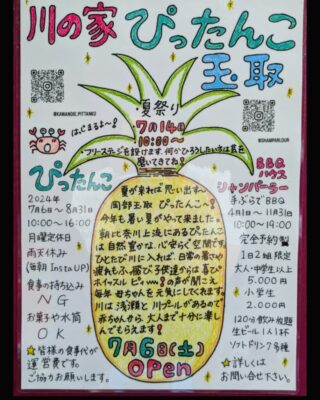 川の家 ぴったんこ
玉取
@KAWANOIE.PITTANKO
@SHAMPARLOUR
夏祭り
はじまるよ〜!
7月14日
10:00〜
フリーステージを設けます。何かひろうしたい方は芸を
磨いてきてね!
ぴったんこ
2024年
7月6日〜8月31日
10:00〜16:00
月曜定休日
雨天休み
(毎朝InstaUP)
食事の持ち込み
NG
お菓子や水筒
OK
☆皆様の食事代が
運営費です。
ご協力お願いします。
夏が来れば思い出す〜
岡部玉取 ぴったんこ〜!
今年も暑い夏がやって来ました。
朝比奈川上流にあるぴったんこ
は自然豊かな、心安らぐ空間です。
ひとたび川に入れば、日常の暑さや
疲れもふっ飛び子供達からは喜び
ホイッスル ピィーの声が聞こえ
毎年母ちゃんを元気にしてくれます。
川は浅瀬と川プールがあるので
赤ちゃんから大人まで十分に楽し
んでもらえます!
7月6日(土)
OPEN
BBQ
ハウス
シャンパーラー
手ぶらでBBQ
4月1日〜11月3日
10:00〜19:00
完全予約制
1日2組限定
大人・中学生以上
5.000円
小学生
2.000円
120分飲み放題
生ビール1人1杯
ソフトドリンク7種
☆詳しくは
お問い合せ下さい。